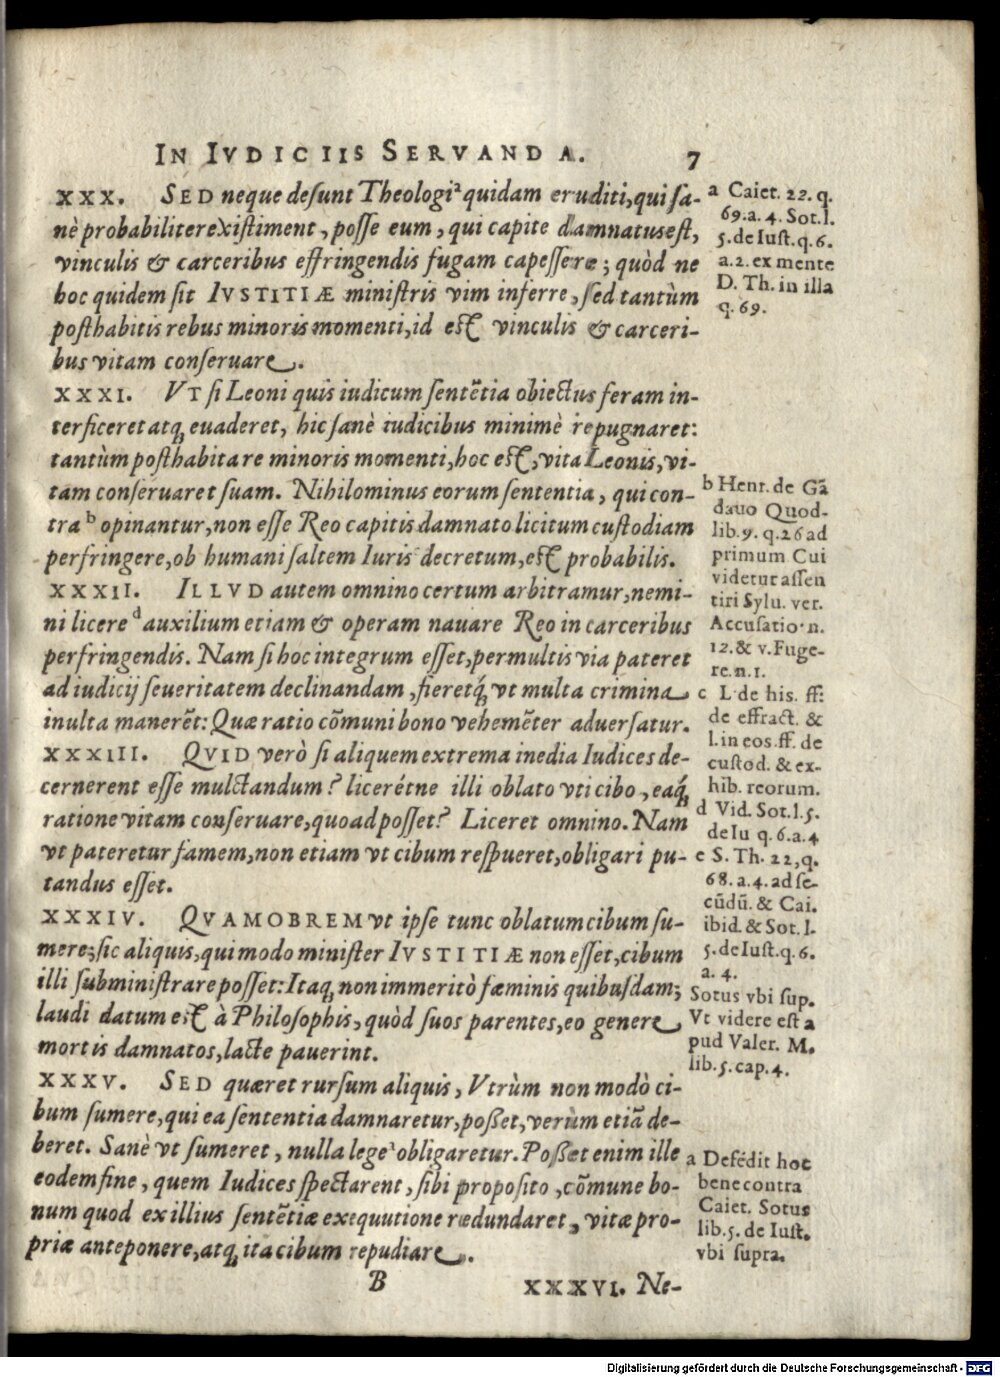 IN IVDICIIS SERVANDA. 7
XXX. SED neque desunt Theologi ᵃ quidam eruditi, qui sa-
nè probabiliter existiment, posse eum, qui capite damnatus est,
vinculis & carceribus effringendis fugam capessere; quòd ne
hoc quidem sit IVSTITIÆ ministris vim inferre, sed tantùm
posthabitis rebus minoris momenti, id est vinculis & carceri-
bus vitam conseruare.
XXXI. VT si Leoni quis iudicum sentētia obiectus feram in-
terficeret atq; euaderet, hic sanè iudicibus minimè repugnaret:
tantùm posthabita re minoris momenti, hoc est, vita Leonis, vi-
tam conseruaret suam. Nihilominus eorum sententia, qui con-
tra ᵇ opinantur, non esse Reo capitis damnato licitum custodiam
perfringere, ob humani saltem Iuris ᶜ decretum, est probabilis.
XXXII. ILLVD autem omnino certum arbitramur, nemi-
ni licere ᵈ auxilium etiam & operam nauare Reo in carceribus
perfringendis. Nam si hoc integrum esset, permultis via pateret
ad iudicij seueritatem declinandam, fieretq́; vt multa crimina
inulta manerēt: Quæ ratio cōmuni bono vehemēter aduersatur.
XXXIII. QVID verò si aliquem extrema inedia Iudices de-
cernerent esse mulctandum? licerétne illi oblato vti cibo, eaq́;
ratione vitam conseruare, quoad posset? Liceret omnino. Nam
vt pateretur famem, non etiam vt cibum respueret, obligari pu-
tandus esset.
XXXIV. QVAMOBREM vt ipse tunc oblatum cibum su-
mere; sic aliquis, qui modo minister IVSTITIÆ non esset, cibum
illi subministrare posset: Itaq; non immeritò fæminis quibusdam;
laudi datum est à Philosophis, quòd suos parentes, eo genere
mortis damnatos, lacte pauerint.
XXXV. SED quæret rursum aliquis, Vtrùm non modò ci-
bum sumere, qui ea sententia damnaretur, posset, verùm etiā de-
beret. Sanè vt sumeret, nulla lege ᵃ obligaretur. Posset enim ille
eodem fine, quem Iudices spectarent, sibi proposito, cōmune bo-
num quod ex illius sentētiæ exequutione redundaret, vitæ pro-
priæ anteponere, atq; ita cibum repudiare.
B XXXVI. Ne-
a Caiet. 22. q.
69. a. 4. Sot. l.
5. de Iust. q. 6.
a. 2. ex mente
D. Th. in illa
q. 69.
b Henr. de Gā
dauo Quod-
lib. 9. q. 26 ad
primum Cui
videtur assen
tiri Sylu. ver.
Accusatio. n.
12. & v. Fuge-
re. n. 1.
c L. de his. ff:
de effract. &
l. in eos. ff. de
custod. & ex-
hib. reorum.
d Vid. Sot. l. 5.
de Iu q. 6. a. 4
e S. Th. 22, q.
68. a. 4. ad se-
cūdū. & Cai.
ibid. & Sot. l.
5. de Iust. q. 6.
a. 4.
Sotus vbi sup.
Vt videre est a
pud Valer. M.
lib. 5. cap. 4.
a Defēdit hoc
bene contra
Caiet. Sotus
lib. 5. de Iust.
vbi supra.
Digitalisierung gefördert durch die Deutsche Forschungsgemeinschaft - DFG